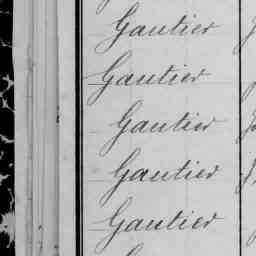 Gautier
Gautier
Gautier
Gautier
Gautier